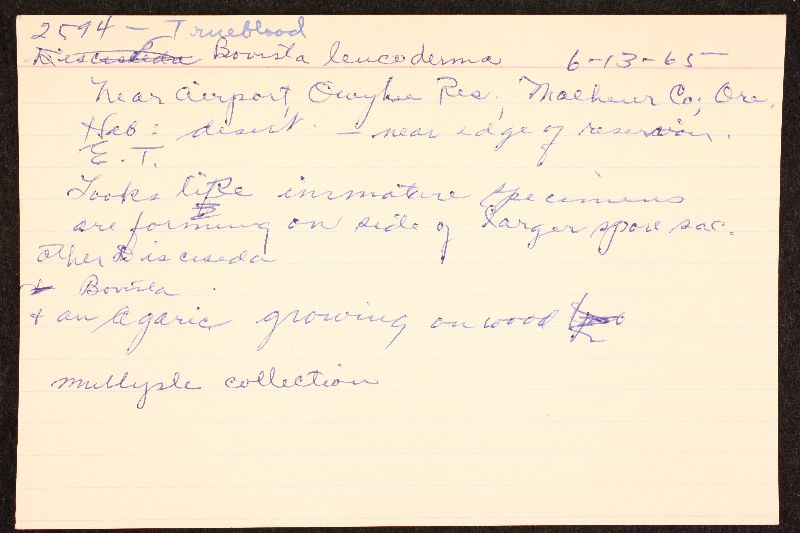 2594 - Trueblood
Disciseda Bovista leucoderma 6-13-65
Near Airport, Owyhee Res., Malheur Co; Ore.
Hab: desert - near edge of reservoir.
E. T.
Looks like immature specimens
are forming on side of larger spore sac.
other Disciseda
+ Bovista
+ an Agaric growing on wood
multiple collection